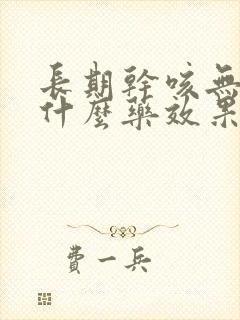 長期幹咳無
什麼藥效果
費一兵